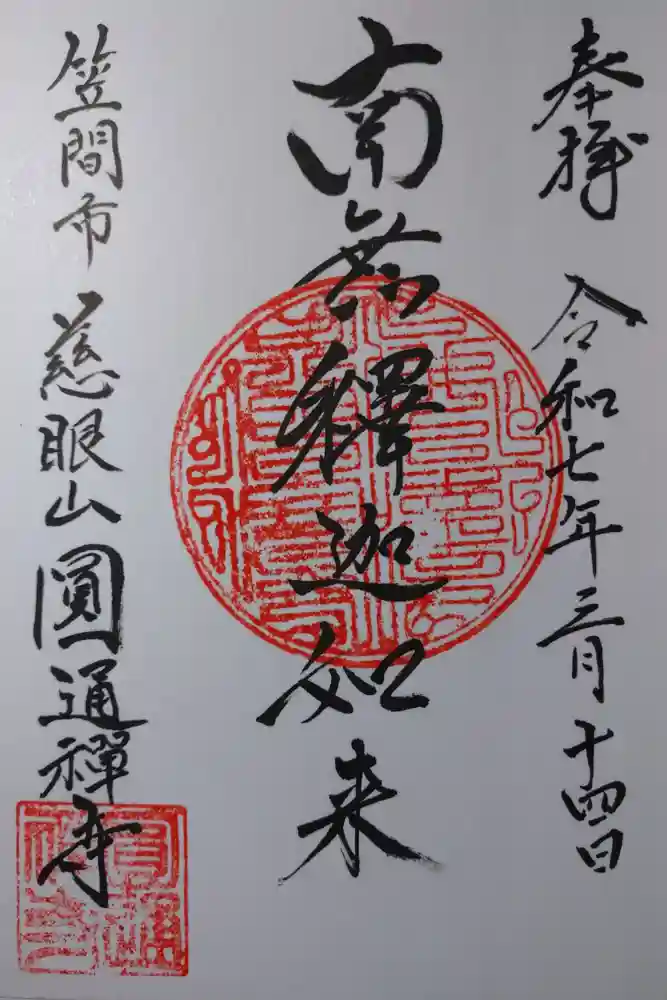 奉拝 令和七年三月十四日
南無釋迦如来
笠間市 慈眼山圓通禪寺